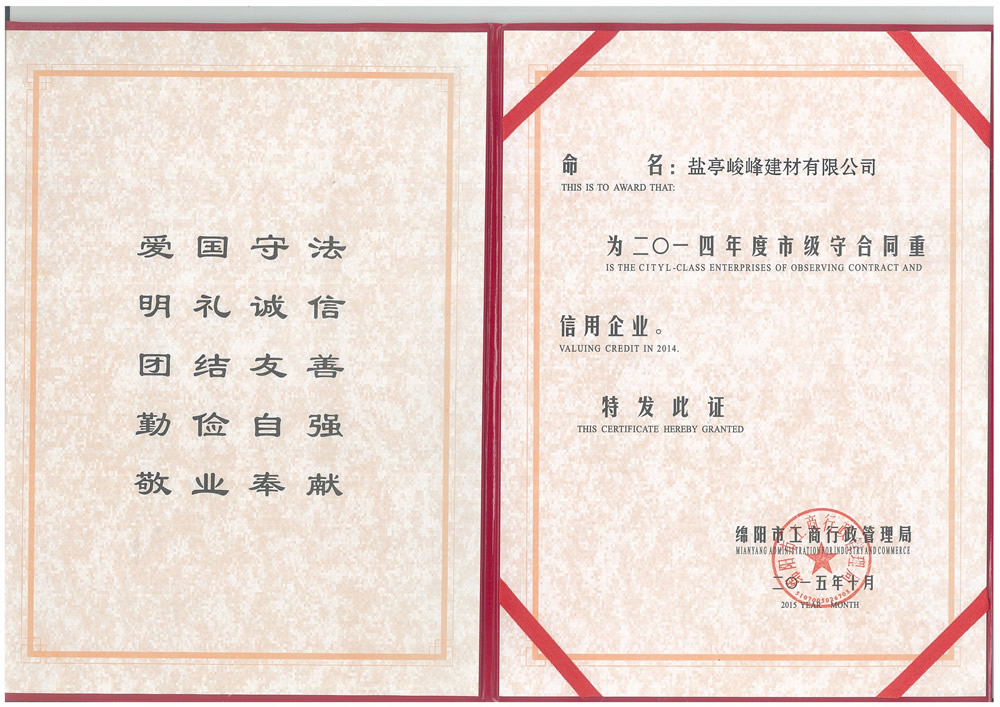 爱国守法
明礼诚信
团结友善
勤俭自强
敬业奉献
命 名：盐亭峻峰建材有限公司
THIS IS TO AWARD THAT:
为二〇一四年度市级守合同重
IS THE CITYL-CLASS ENTERPRISES OF OBSERVING CONTRACT AND
信用企业。
VALUING CREDIT IN 2014.
特发此证
THIS CERTIFICATE HEREBY GRANTED
绵阳市工商行政管理局
MIANYANG ADMINISTRATION FOR INDUSTRY AND COMMERCE
二〇一五年十月
2015 YEAR MONTH
绵阳市工商行政管理局